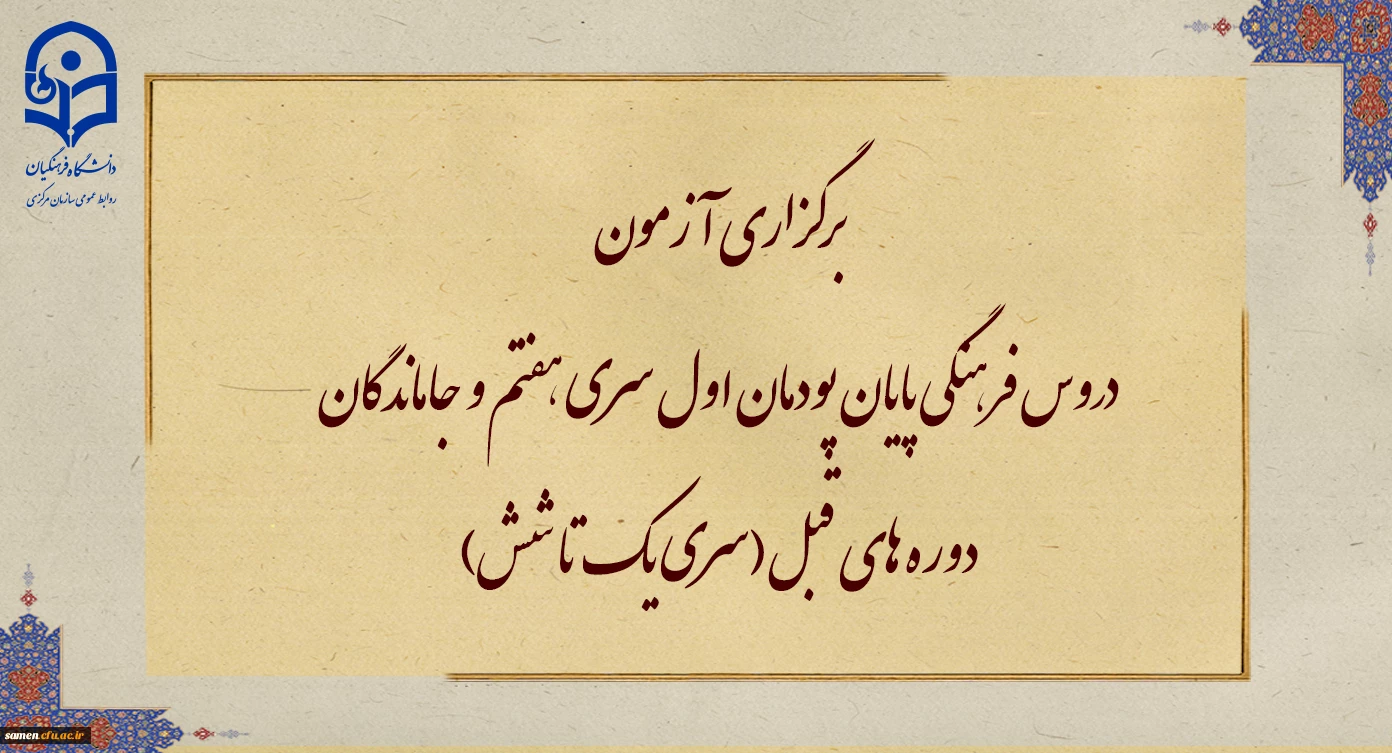 دانشگاه فرهنگیان
روابط عمومی سازمان مرکزی
برگزاری آزمون
دروس فرهنگی پایان پودمان اول سری هفتم و جاماندگان
دوره های قبل (سری یک تا شش)
samen.cfu.ac.ir